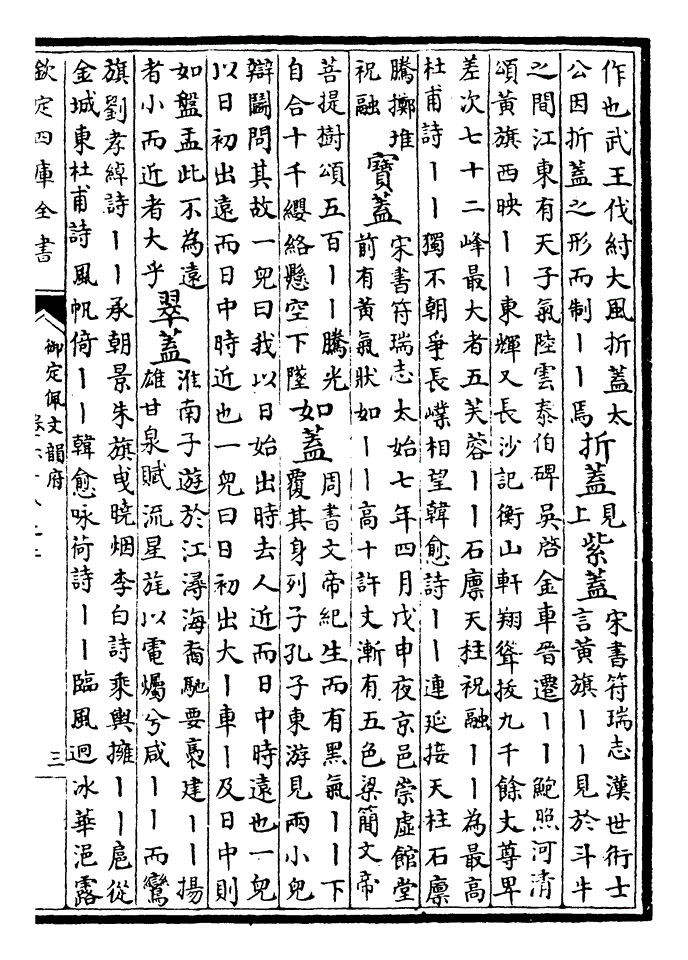 作也武王伐紂大風折蓋太
公因折蓋之形而制丨丨焉
折蓋
見
上
紫蓋
宋書符瑞志漢世術士
言黃旗丨丨見於斗牛
之間江東有天子氣陸雲泰伯碑吳啓金車晉遷丨丨鮑照河清
頌黃旗西映丨丨東輝又長沙記衡山軒翔聳拔九千餘丈尊卑
差次七十二峰最大者五芙蓉丨丨石廩天柱祝融丨丨為最高
杜甫詩丨丨獨不朝爭長嶫相望韓愈詩丨丨連延接天柱石廩
騰擲堆
祝融
寳蓋
宋書符瑞志太始七年四月戊申夜京邑崇虛館堂
前有黃氣狀如丨丨高十許丈漸有五色梁簡文帝
菩提樹頌五百丨丨騰光
自合十千纓絡懸空下墜
如蓋
周書文帝紀生而有黑氣丨丨下
覆其身列子孔子東游見兩小兒
辯鬭問其故一兒曰我以日始出時去人近而日中時遠也一兒
以日初出遠而日中時近也一兒曰日初出大丨車丨及日中則
如盤盂此不為遠
者小而近者大乎
翠蓋
淮南子遊於江潯海裔馳要褭建丨丨揚
雄甘泉賦流星旄以電爥兮咸丨丨而鸞
旗劉孝綽詩丨丨承朝景朱旗曳曉烟李白詩乘輿擁丨丨扈從
金城東杜甫詩風帆倚丨丨韓愈咏荷詩丨丨臨風迥冰華浥露
欽定四庫全書
御定佩文韻府
三